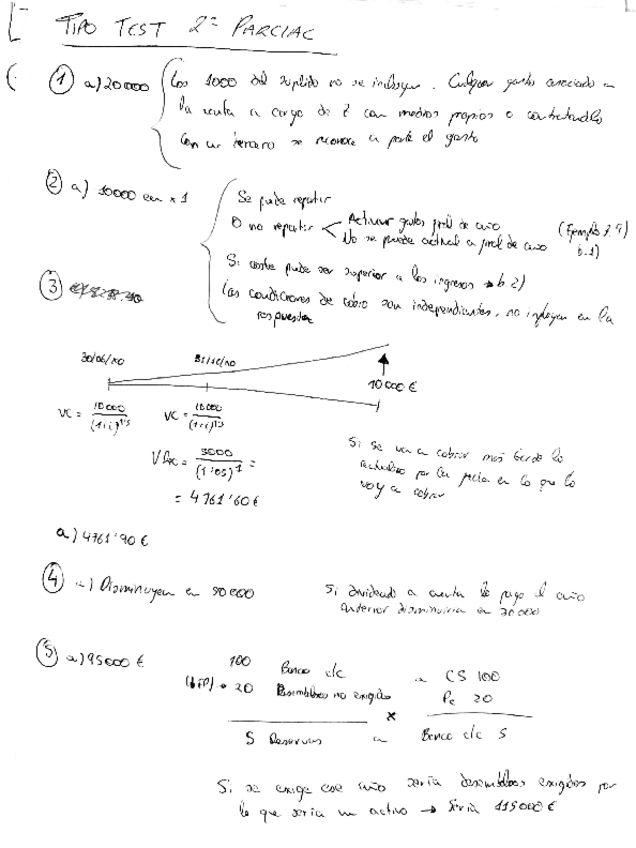 TIPO TEST 2º PARCIAL
① a) 20000 Los 1000 del suplido no se incluyen. Cualquier gasto asociado a
la venta a cargo de con medios propios o contratandolo
con un tercero se reconoce a parte el gasto
② a) 10000 en x1
Se puede repartir
O no repartir Activar gastos
No se puede (Ejemplo 7.9)
b.1)
Si coste puede ser superior a los ingresos → b.2)
Las condiciones de cobro son independientes, no influyen en la
respuesta
③
30/06/x0 31/12/x0
10000 €
VC = 10000 / (1+i)^1'5 VC = 10000 / (1+i)
5000 / (1'05)^1 =
= 4761'60 €
Si se va a cobrar mas tarde lo
actualizo por la fecha en lo que lo
voy a cobrar
a) 4761'90 €
④ Disminuyen en 50000
Si dividendo a cuenta lo pago el año
anterior disminuiria en 20000
⑤ a) 95000 €
100 Banco c/c a CS 100
20 Desembolsos no exigidos Pe 20
x
5 Reservas a Banco c/c 5
Si se exige ese año seria desembolsos exigidos por
lo que seria un activo → Seria 115000 €